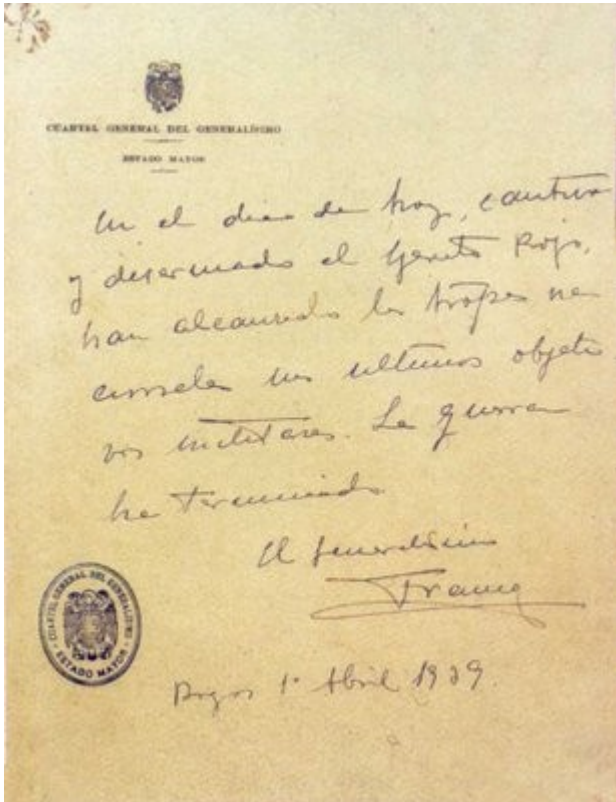 CUARTEL GENERAL DEL GENERALÍSIMO
ESTADO MAYOR
En el dia de hoy, cautivo
y desarmado el Ejercito Rojo,
han alcanzado las tropas na
cionales sus ultimos objeti
vos militares. La guerra
ha terminado
El Generalisimo
Franco
Burgos 1º Abril 1939.
CUARTEL GENERAL DEL GENERALISIMO
ESTADO MAYOR